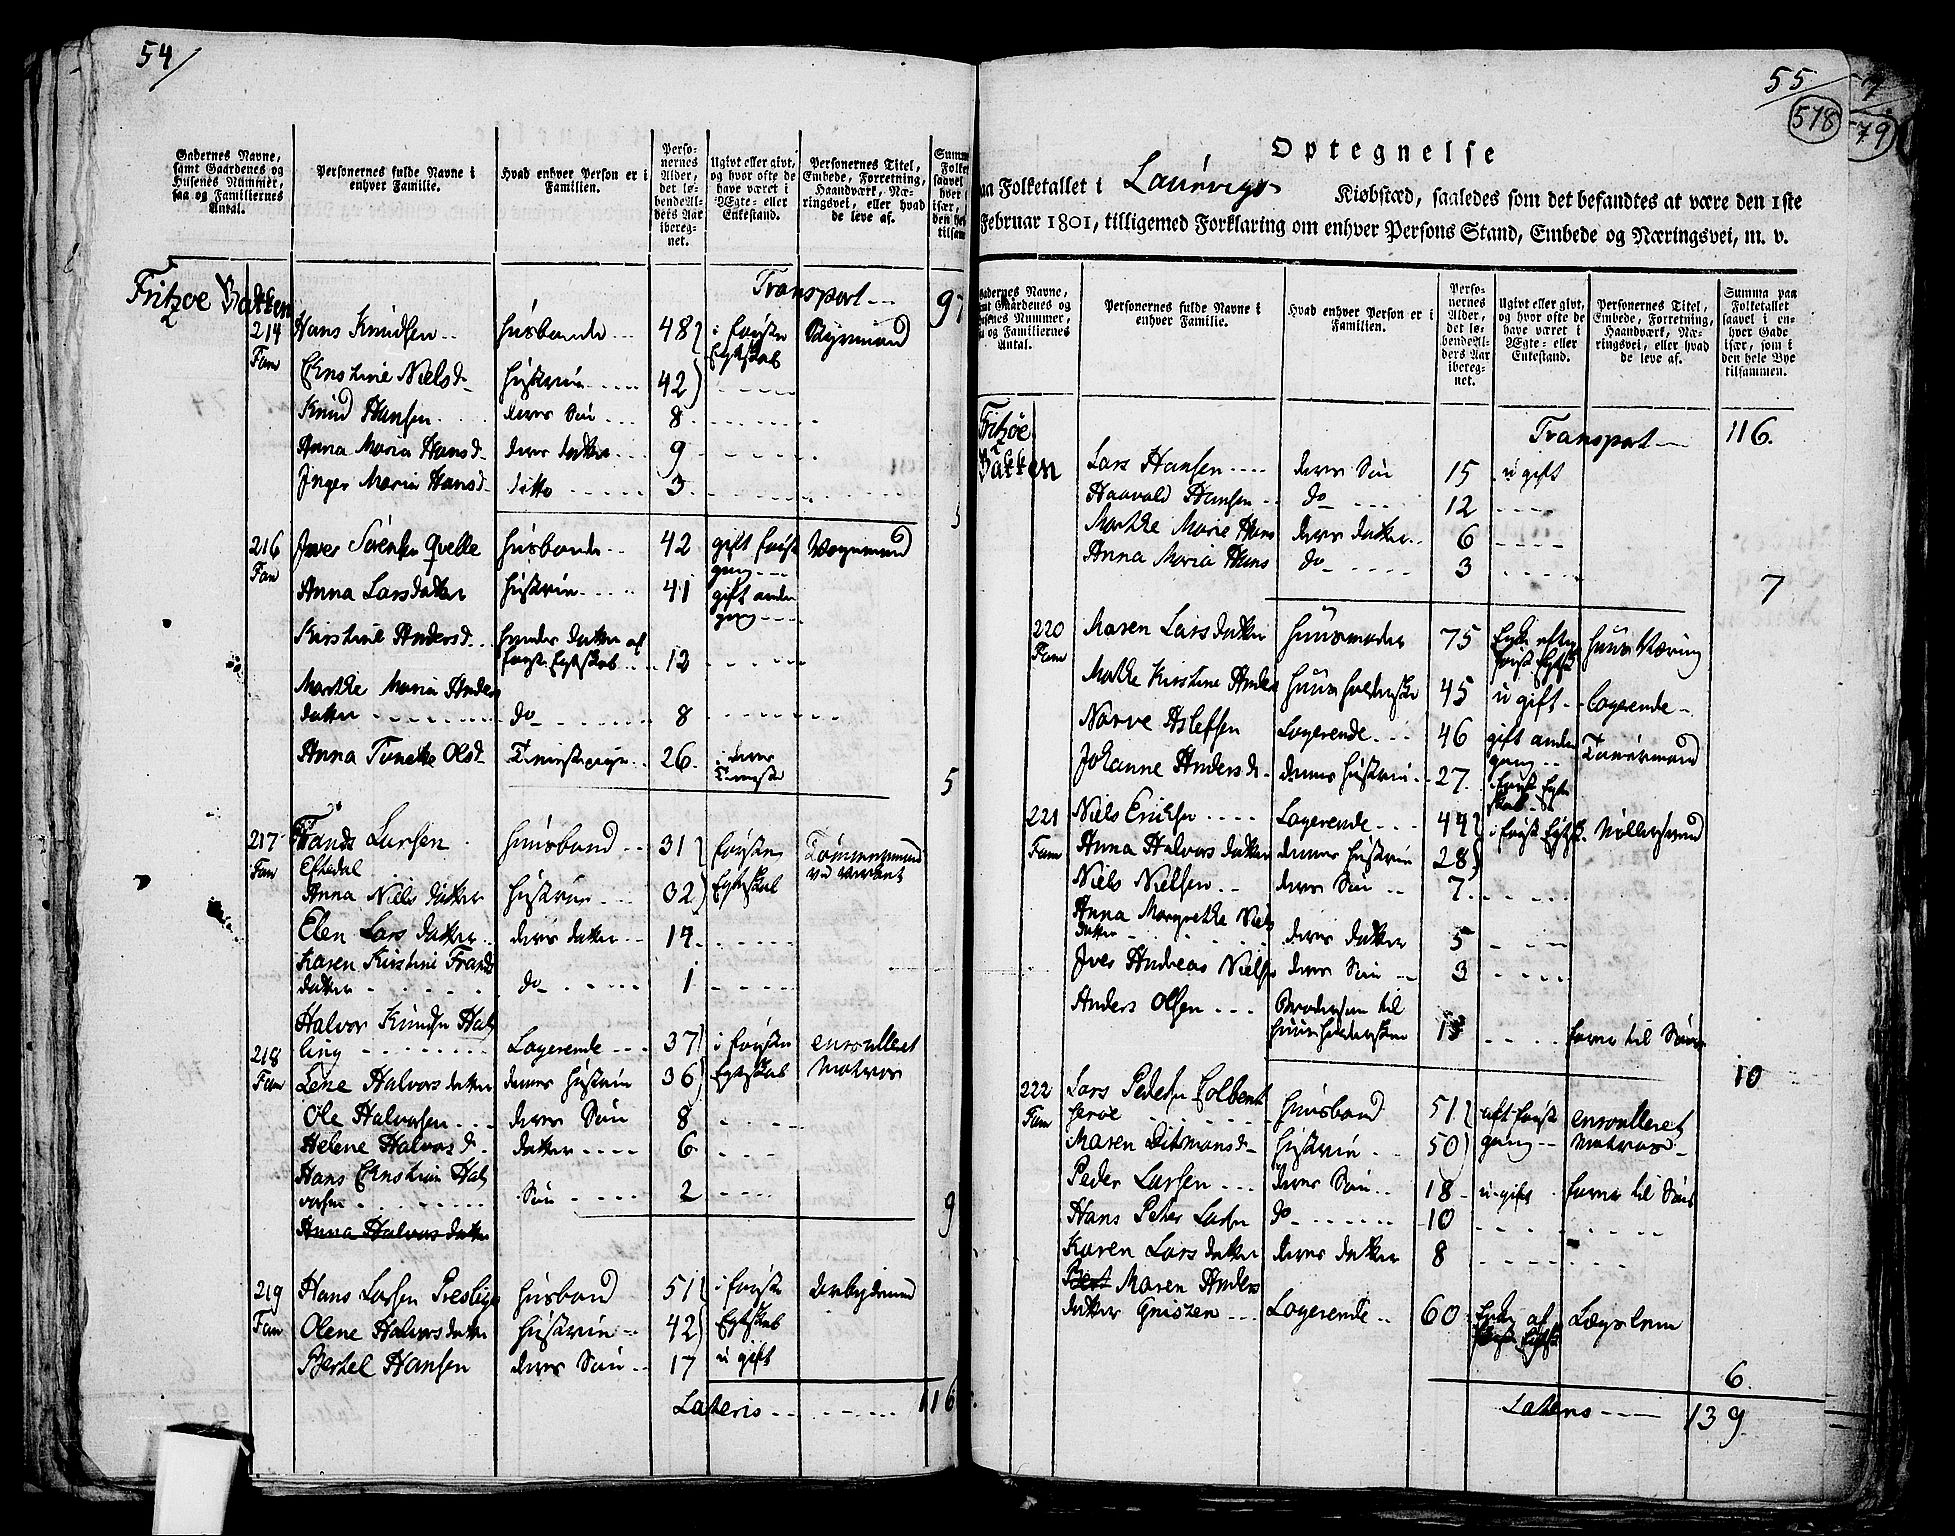 54
Gadernes Navne, samt Gaardenes og Husenes Nummer, saa og Familiernes Antal.
Personernes fulde Navne i enhver Familie.
Hvad enhver Person er i Familien.
Personernes Alder, det løbende Alders Aar iberegnet.
Ugivt eller givt, og hvor ofte de have været i Ægte- eller Enkestand.
Personernes Titel, Embede, Forretning, Haandværk, Næringsvei, eller hvad de leve af.
Fritzoe Bakken
Transport 97
214 Hans Knudsen husbonde 48 i første
Fam Egteskab
Ernstine Nielsd hustrue 42
Knud Hansen deres Søn 8
Anna Maria Hansd deres datter 9
Inger Maria Hansd ditto 3
5
216 Iver Sørensen Qvelle husbonde 42 gift først
Fam gang
Anna Larsdatter hustrue 41 gift anden
gang
Kirstine Andersd hendes datter af
første Egteskab 12
Marthe Maria Anders
datter do 8
Anna Olsd Tieniste pige 26 i deres
Tieneste
5
217 Frands Larsen huusbond 31 første Tømmermand
Fam Eftedal ved værket
Anna Niels datter hustrue 32 Egteskab
Elen Lars datter deres datter 14
Karen Kirstine Frands
datter do 1
Halvor Knudsen Hal
218 ling Logerende 37 i første enroulleret
Fam Lene Halvors datter dennes hustrue 36 Egteskab Matros
Ole Halvorsen deres Søn 8
Helene Halvorsd datter 6
Hans Ernstian Hal
vorsen Søn 2
9
Anna Halvors datter
219 Hans Larsen husbond 51 i første Arbejdsmand
Fam Olene Halvorsdatter hustrue 42 Egteskab
Bertel Hansen deres Søn 17 u gift
Lateris 116
55
578
79
Optegnelse
paa Folketallet i Laurvigs Kiøbstæd, saaledes som det befandtes at være den 1ste
Februar 1801, tilligemed Forklaring om enhver Persons Stand, Embede og Næringsvei, m. v.
Gadernes Navne, samt Gaardenes og Husenes Nummer, saa og Familiernes Antal.
Personernes fulde Navne i enhver Familie.
Hvad enhver Person er i Familien.
Personernes Alder, det løbende Alders Aar iberegnet.
Ugivt eller givt, og hvor ofte de have været i Ægte- eller Enkestand.
Personernes Titel, Embede, Forretning, Haandværk, Næringsvei, eller hvad de leve af.
Summa paa Folketallet saavel i enhver Gade især, som i den hele Bye tilsammen.
Fritzøe
Bakken
Transport 116.
Lars Hansen deres Søn 15 u gift
Haavald Hansen do 12
Marthe Marie Hans deres datter 6
Anna Maria Hans do 3
7
220 Maren Lars datter huusmoder 75 Enke efter
Fam først Egtsk
Mathe Kirstine Anders huusholderske 45 u gift Logerende
Narve Aslefsen Logerende 46 gift anden
gang
Johanne Anders d dennes hustrue 27 første Egte
skab
221 Niels Erichsen Logerende 44 i først Egtsk
Fam Anna Halvors datter dennes hustrue 28
Niels Nielsen deres Søn 7
Anna Margrethe Niels
datter deres datter 5
Iver Andreas Nielsen deres Søn 3
Anders Olsen Brodersøn til
huusholdersken 13 farer til Søes
10
222 Lars Pedersen
Fam huusbond 51 enroulleret
Maren Ditmansd hustrue 50 gang Matros
Peder Larsen deres Søn 18 u gift farer til Søes
Hans Peter Larsen do 10
Karen Larsdatter deres datter 8
Maren Anders
datter Logerende 60 Enke af
først Egtsk Lægslem
6
Lateris 139